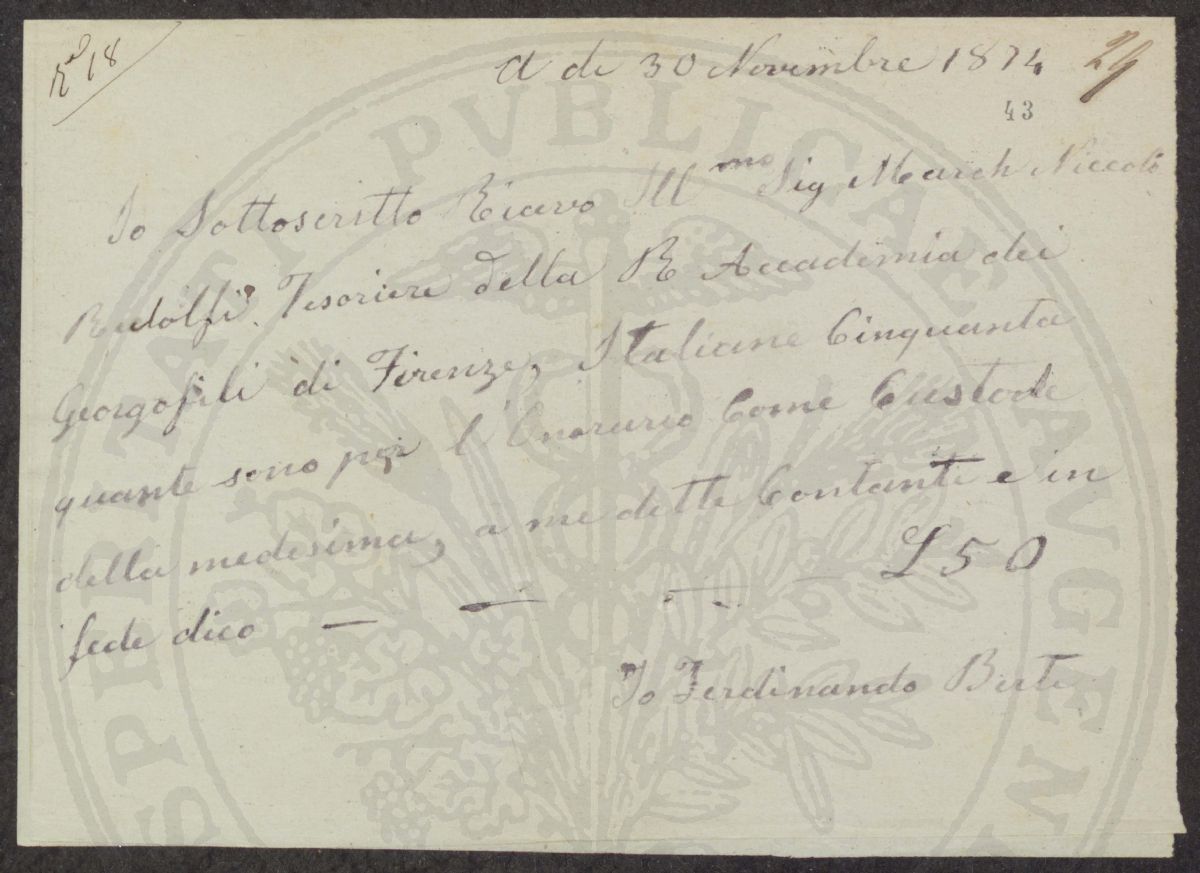 Rº 18
A di 30 Novembre 1874 29
43
Io Sottoscritto Ricevo Ill mo Sig March Niccolò
Ridolfi Tesoriere della R Accademia dei
Georgofili di Firenze, Italiane Cinquanta
quante sono per l'Onorario Come Custode
della medesima, a me dette Contanti e in
fede dico — — — — £ 50
Io Ferdinando Berti
PROSPERITATI PVBLICAE AVGENDAE